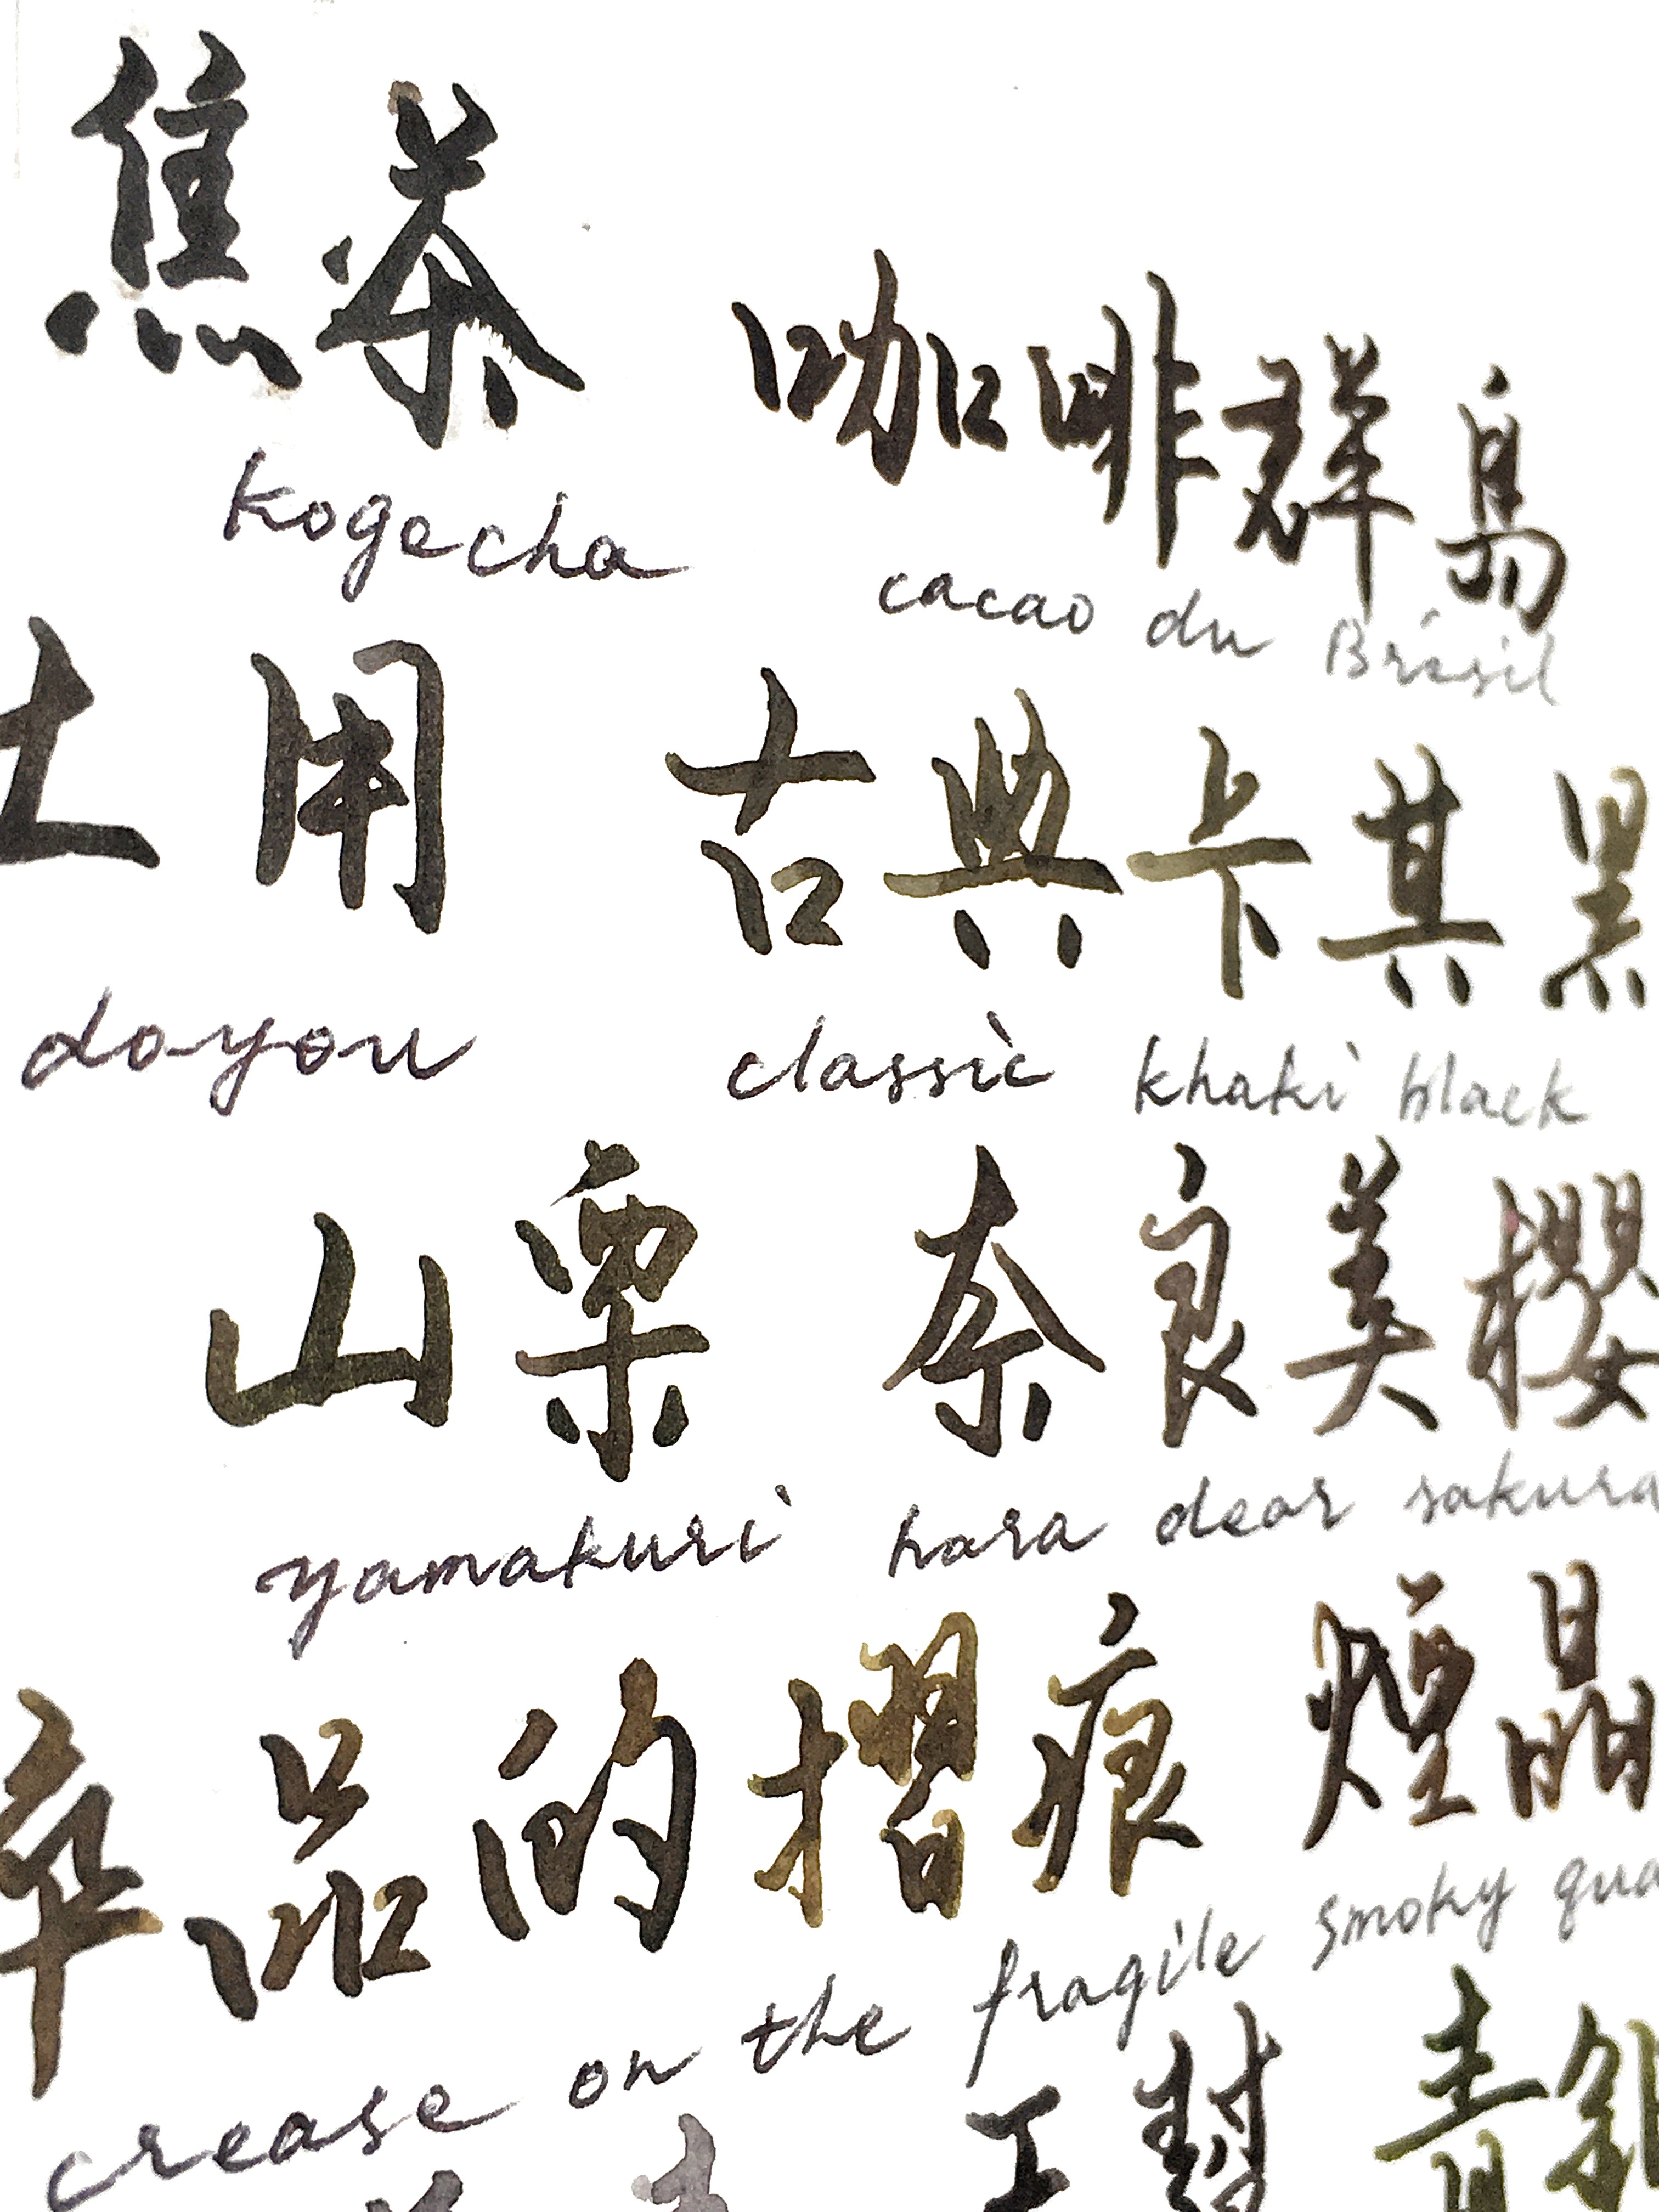 焦茶 咖啡群島
kogecha cacao du Brésil
土用 古典卡其黑
doyou classic khaki black
山栗 奈良美櫻
yamakuri hara dear sakura
卒品的摺痕 煙晶
crease on the fragile smoky
青